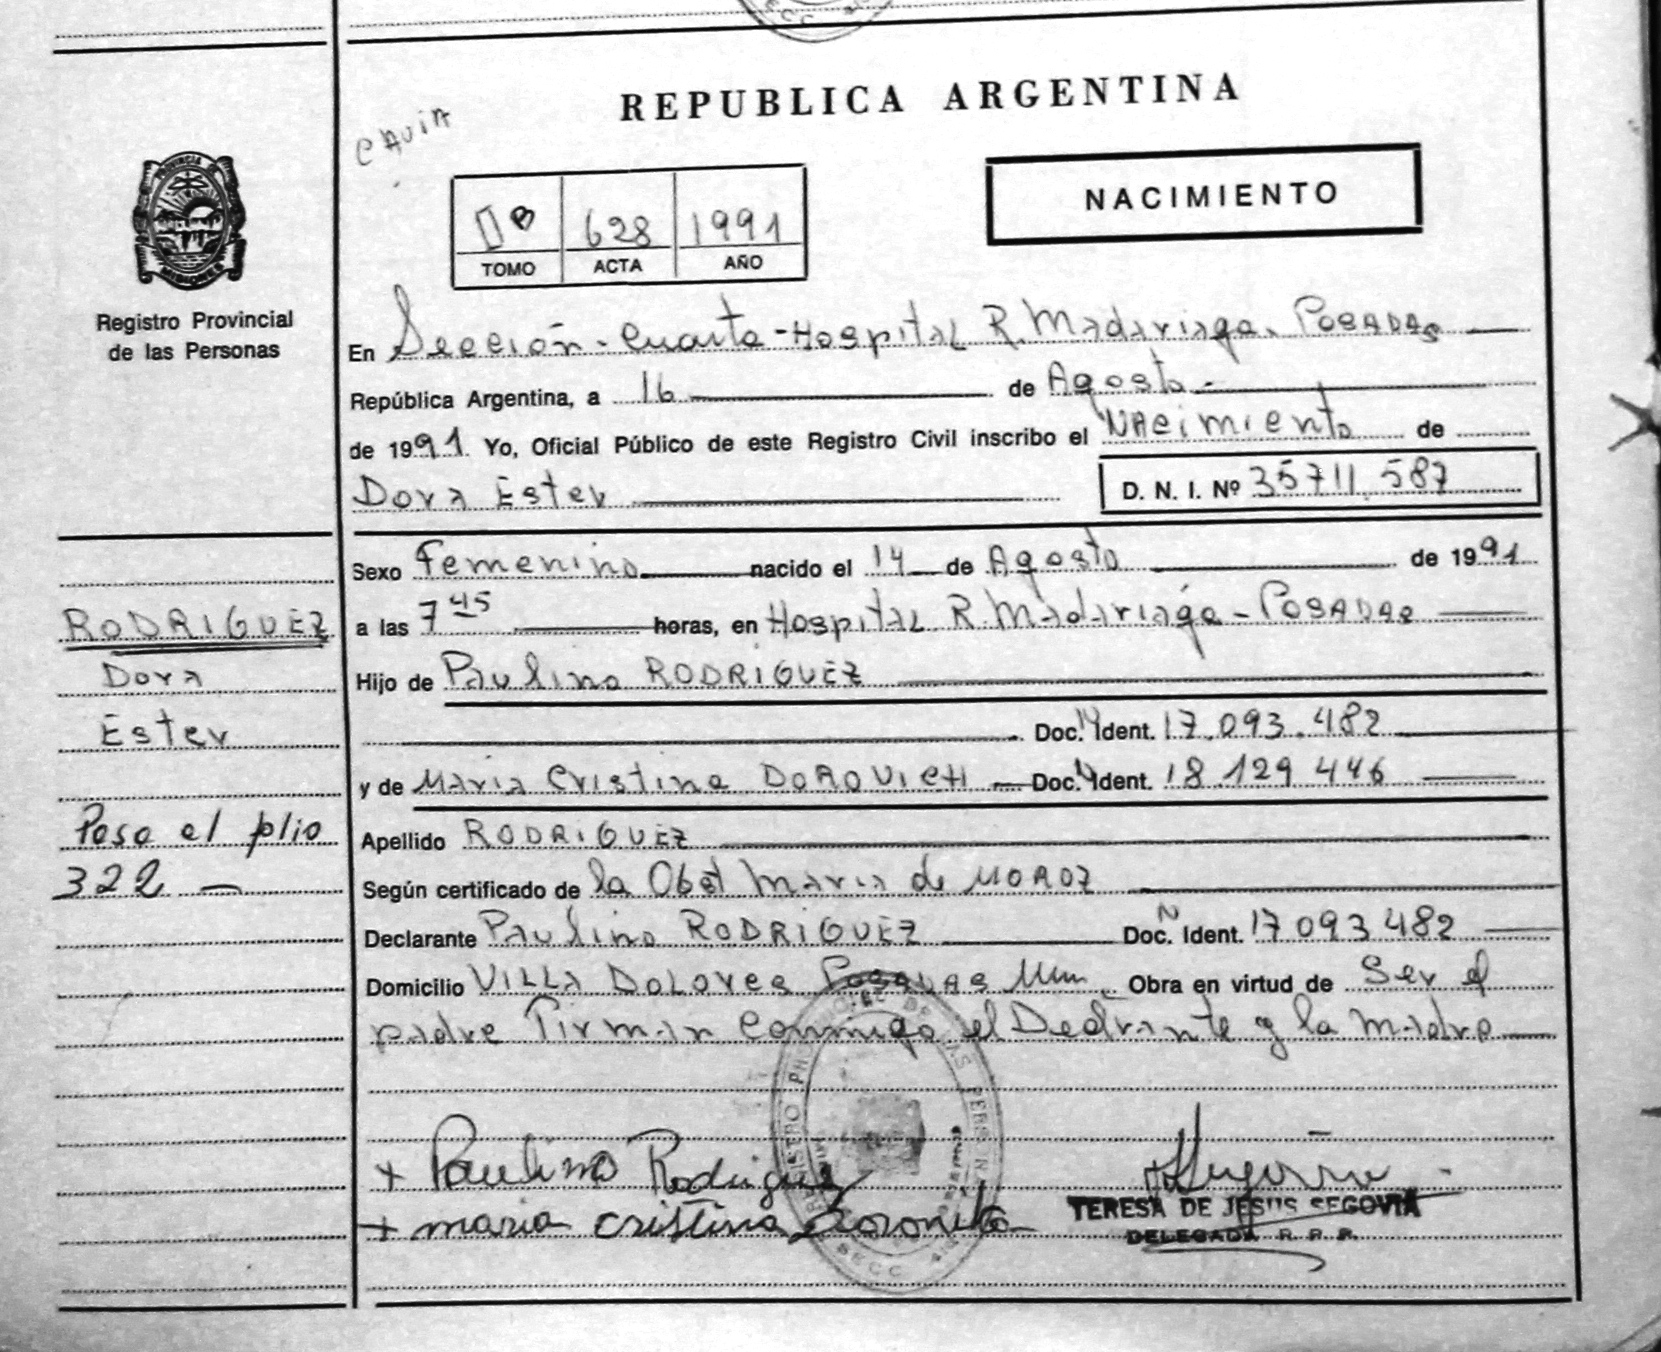 REPUBLICA ARGENTINA
NACIMIENTO
628 1991
TOMO ACTA AÑO
PROVINCIA DE
MISIONES
Registro Provincial
de las Personas
En Sección - Cuarta - Hospital R. Madariaga. POSADAS
República Argentina, a 16 de Agosto -
de 1991 Yo, Oficial Público de este Registro Civil inscribo el NAcimiento de
Dora Ester D. N. I. Nº 35711.587
Sexo Femenino nacido el 14 de Agosto de 1991
a las 7 45 horas, en Hospital R. Madariaga - POSADAS
Hijo de Paulino RODRIGUEZ
Doc. Ident. 17.093.482
y de Maria Cristina DOROVICH Doc. Ident. 18.129.446
Apellido RODRIGUEZ
Según certificado de la Obst Maria de MOROZ
Declarante Paulino RODRIGUEZ Doc. Ident. 17 093 482
Domicilio VILLA DOLORES POSADAS Obra en virtud de Ser el
padre Firman Conmigo el y la madre
RODRIGUEZ
Dora
Ester
Pasa al
322 —
+ Paulino Rodriguez
+ maria cristina
TERESA DE JESUS SEGOVIA
DELEGADA R. P. P.